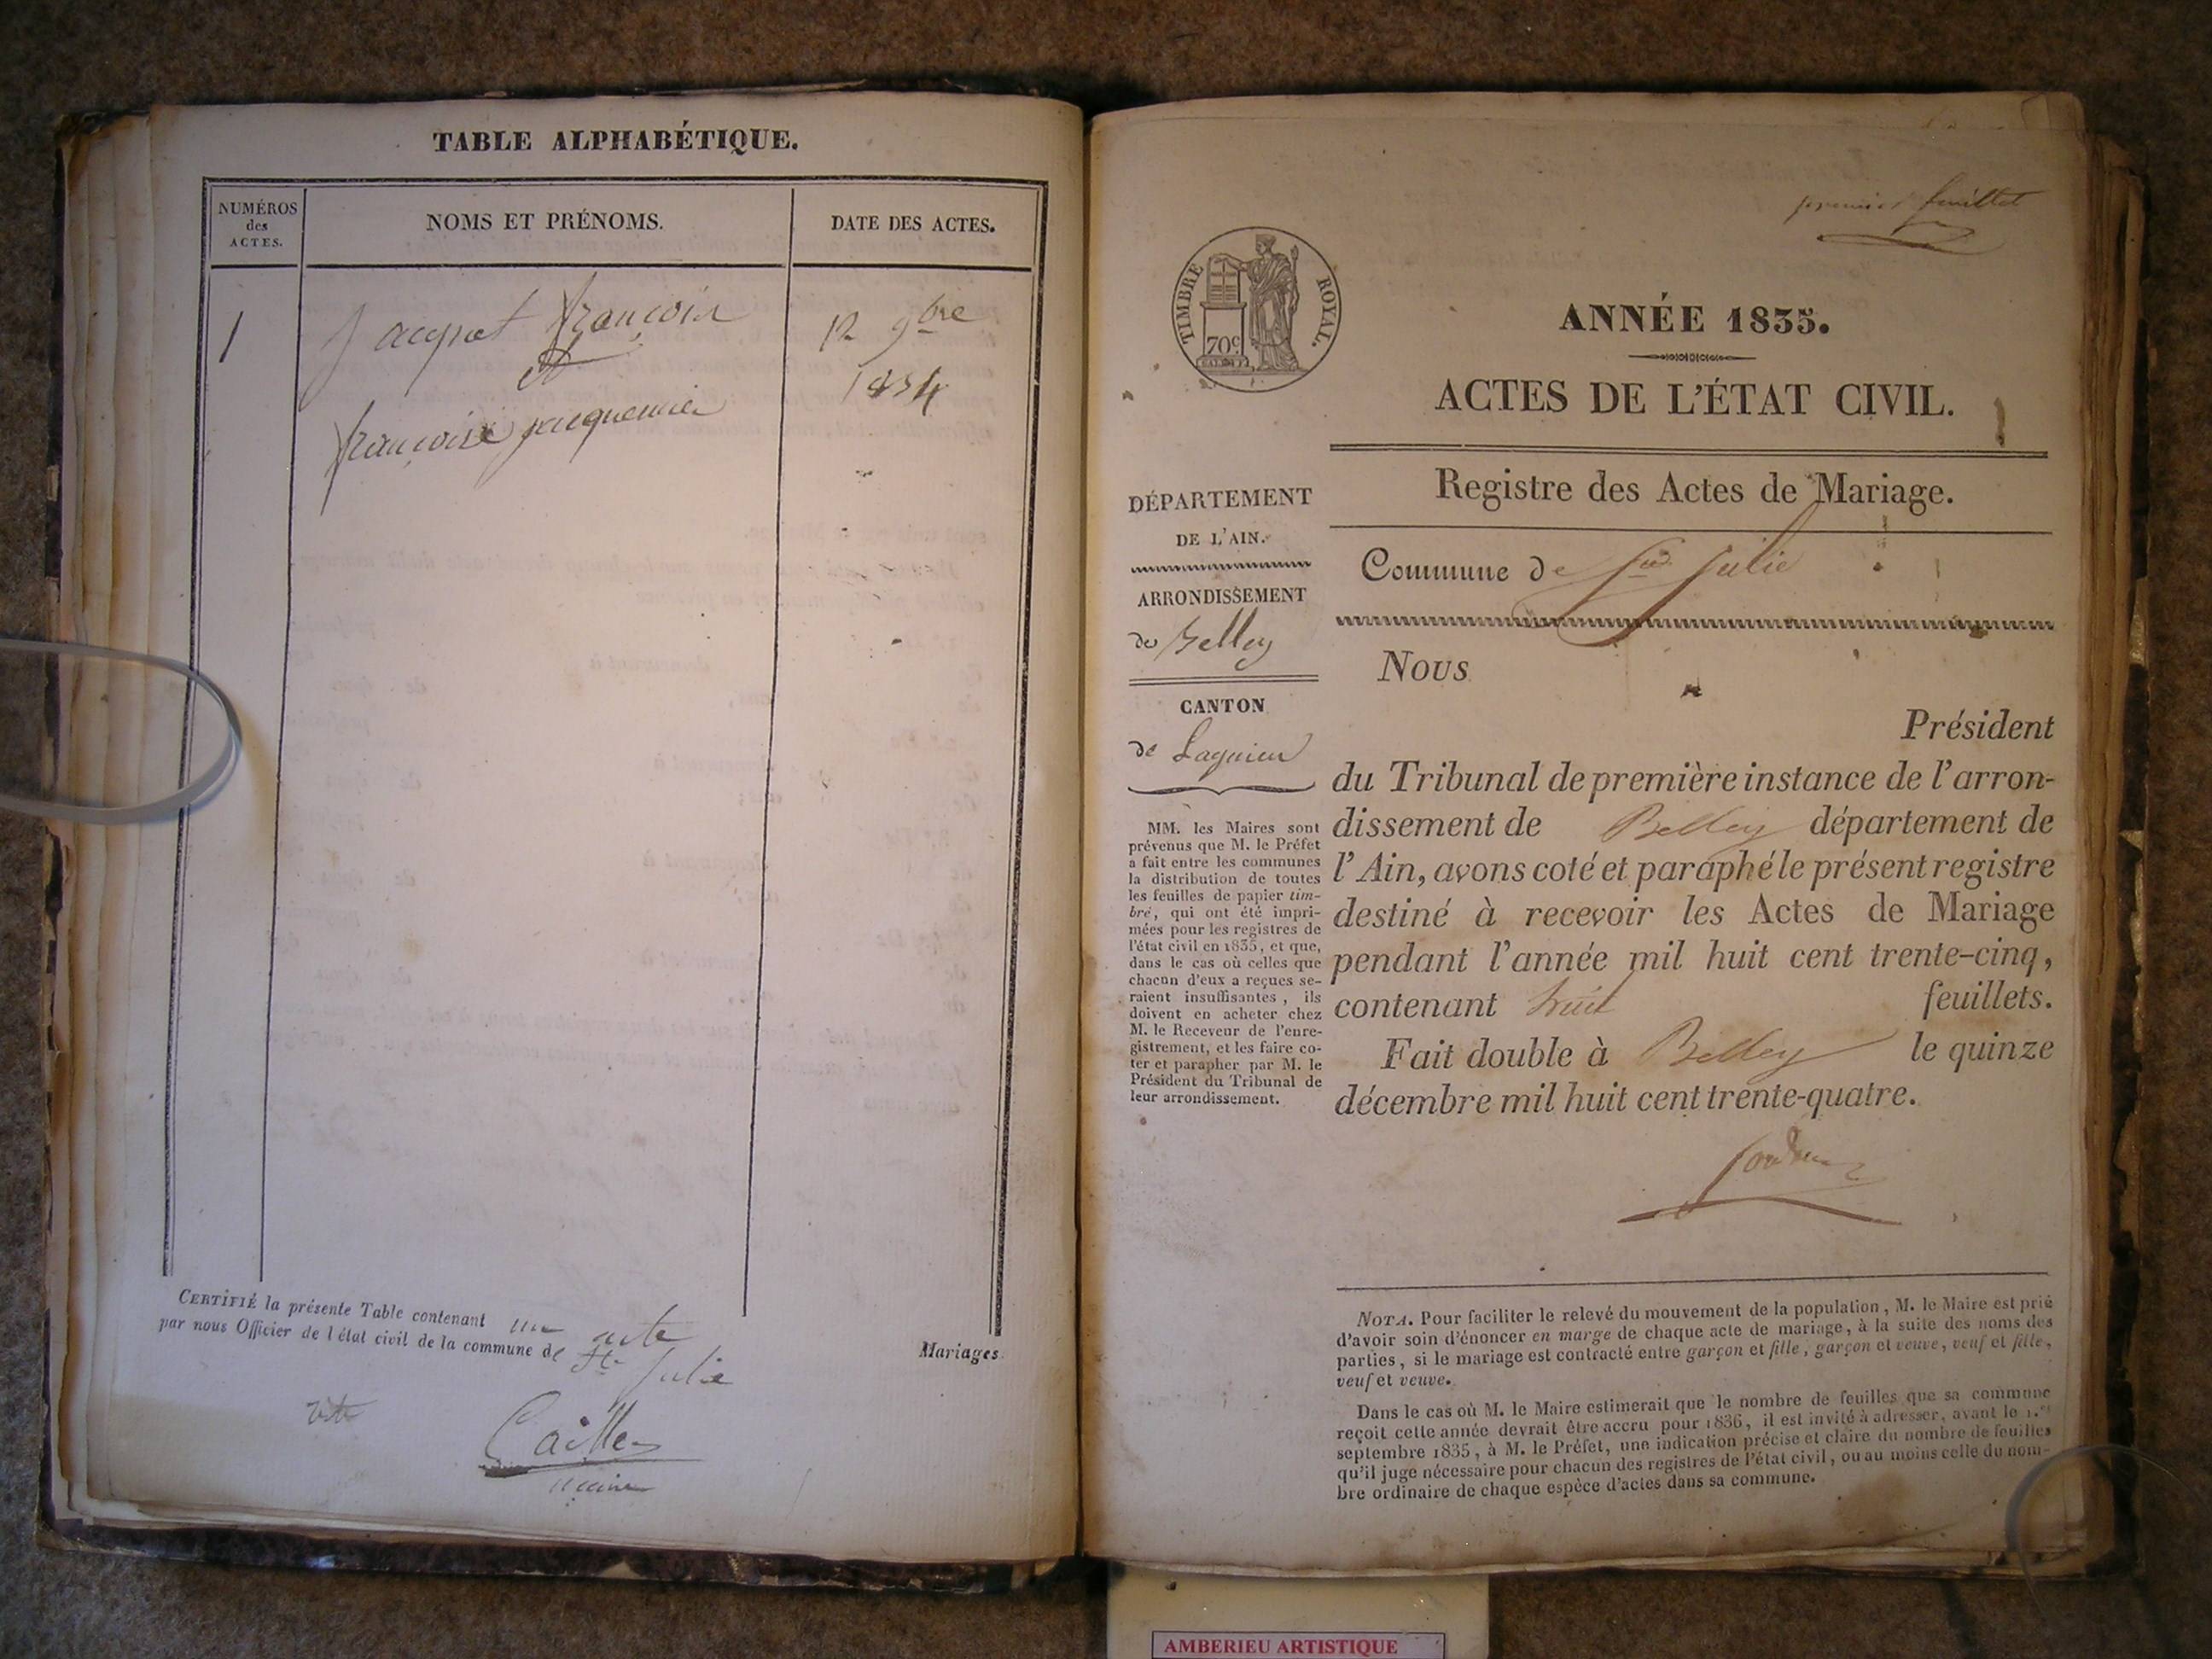 TABLE ALPHABÉTIQUE.
NUMÉROS
des
ACTES.
NOMS ET PRÉNOMS.
DATE DES ACTES.
1
Jacquet françois
et
françoise jacquemier
12 9bre
1834
CERTIFIÉ la présente Table contenant un acte
par nous Officier de l'état civil de la commune de Ste Julie
Mariages.
Caille
maire
premier feuillet
TIMBRE ROYAL.
70c
ANNÉE 1835.
ACTES DE L'ÉTAT CIVIL.
Registre des Actes de Mariage.
Commune de Ste Julie
DÉPARTEMENT
DE L'AIN.
ARRONDISSEMENT
de Belley
CANTON
de Lagnieu
MM. les Maires sont
prévenus que M. le Préfet
a fait entre les communes
la distribution de toutes
les feuilles de papier tim-
bré, qui ont été impri-
mées pour les registres de
l'état civil en 1835, et que,
dans le cas où celles que
chacun d'eux a reçues se-
raient insuffisantes, ils
doivent en acheter chez
M. le Receveur de l'enre-
gistrement, et les faire co-
ter et parapher par M. le
Président du Tribunal de
leur arrondissement.
Nous
Président
du Tribunal de première instance de l'arron-
dissement de Belley département de
l'Ain, avons coté et paraphé le présent registre
destiné à recevoir les Actes de Mariage
pendant l'année mil huit cent trente-cinq,
contenant huit feuillets.
Fait double à Belley le quinze
décembre mil huit cent trente-quatre.
NOTA. Pour faciliter le relevé du mouvement de la population, M. le Maire est prié
d'avoir soin d'énoncer en marge de chaque acte de mariage, à la suite des noms des
parties, si le mariage est contracté entre garçon et fille, garçon et veuve, veuf et fille,
veuf et veuve.
Dans le cas où M. le Maire estimerait que le nombre de feuilles que sa commune
reçoit cette année devrait être accru pour 1836, il est invité à adresser, avant le 1.er
septembre 1835, à M. le Préfet, une indication précise et claire du nombre de feuilles
qu'il juge nécessaire pour chacun des registres de l'état civil, ou au moins celle du nom-
bre ordinaire de chaque espèce d'actes dans sa commune.
AMBERIEU ARTISTIQUE